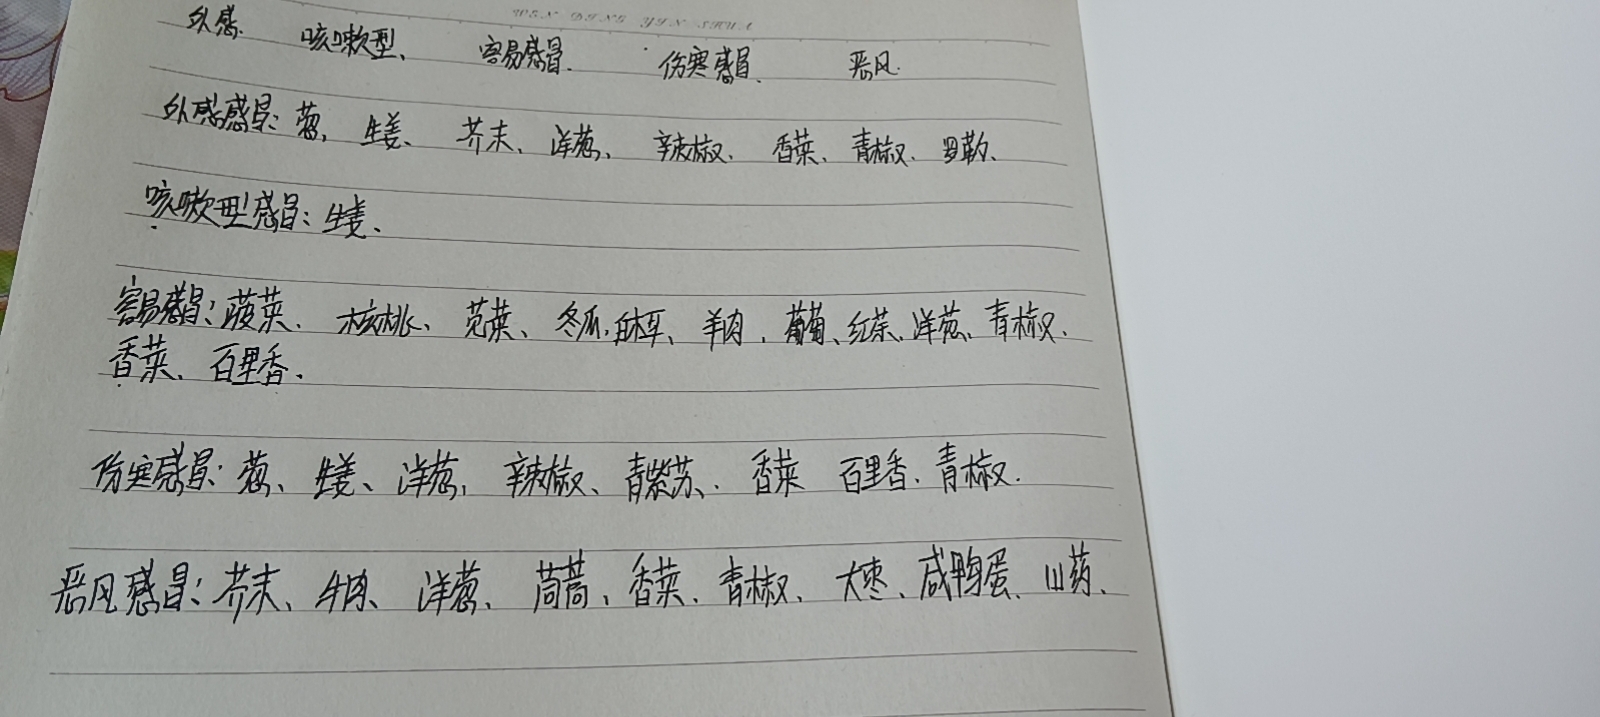 WEN DING YIN SHUA
外感. 咳嗽型、 容易感冒. 伤寒感冒. 恶风.
外感感冒: 葱, 生姜、 芥末、 洋葱、 辣椒. 香菜. 青椒. 罗勒、
咳嗽型感冒: 生姜、
容易感冒: 菠菜. 核桃、 苋菜、 冬瓜, 羊肉. 葡萄、红茶. 洋葱, 青椒.
香菜、 百里香.
伤寒感冒: 葱、 生姜、 洋葱, 辣椒、 青紫苏、. 香菜 百里香. 青椒.
恶风感冒: 芥末、 牛肉、 洋葱、 茼蒿、香菜. 青椒、 大枣、咸鸭蛋、 山药、